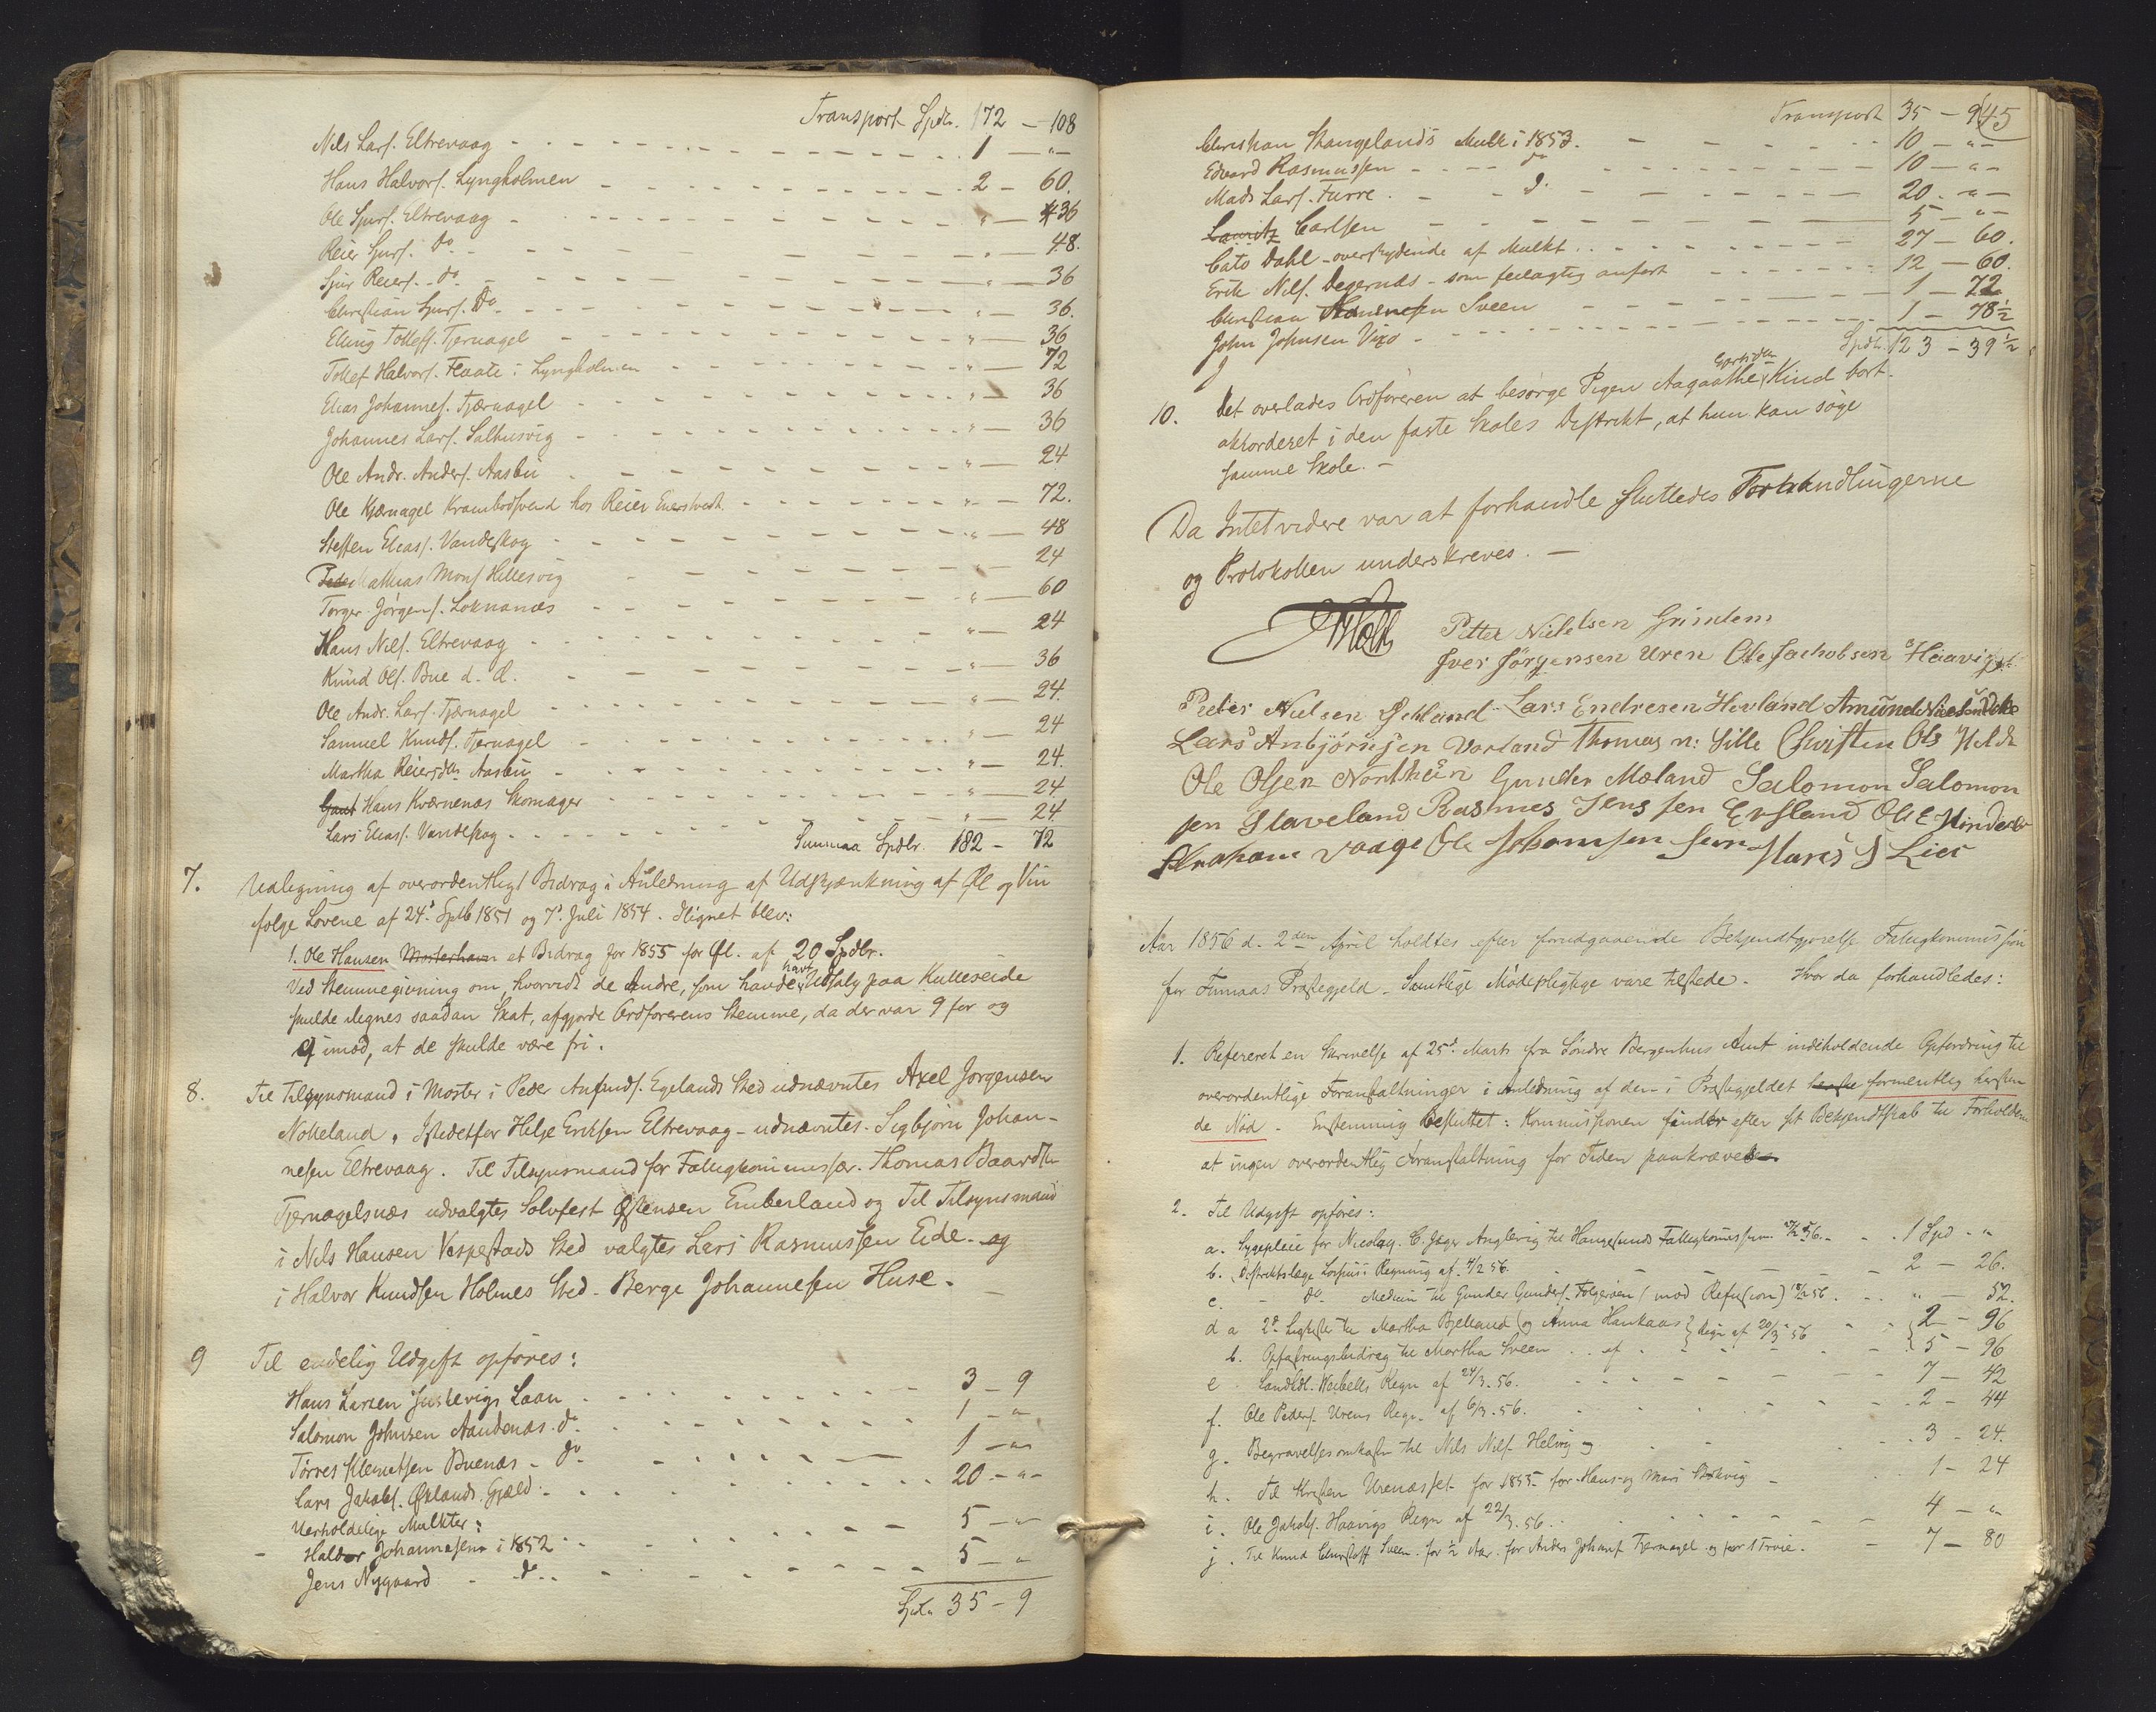 Transport Spdlr. 172 - 108
Nils Lars. Eltrevaag - 1 - " -
Hans Halvors. Lyngholmen - 2 - 60.
Ole Sjurs. Eltrevaag - " - 36
Reier Sjurs. Do - " - 48.
Sjur Reiers. Do - " - 36
Christian Sjurs. Do - " - 36.
Elling Tollefs. Tjernagel - " - 36
Tollef Halvors. Flaate i Lyngholmen - " - 72
Elias Johannes. Tjærnagel - " - 36
Johannes Lars. Salhusvig - " - 36
Ole Andr. Anders. Aasbu - " - 24
Ole Kjærnagel Krambodsvend hos Reier - " - 72.
Steffen Elias. Vandeskog - " - 48
Mathias Mons. Hillesvig - " - 24
Torger Jørgens. Loknanæs - " - 60
Hans Nils. Eltrevaag - " - 24
Knud Ols. Bue d. d. - " - 36
Ole Andr. Lars. Tjærnagel - " - 24.
Samuel Knuds. Tjernagel - " - 24
Martha Reiersdtr Aasbu - " - 24.
Hans Kværnenæs Skomager - " - 24
Lars Elias. Vandeskog - " - 24.
Summa Spdlr. 182 - 72
7. Udligning af overordentligt Bidrag i Anledning af Udskjænkning af Øl og Vin
følge Lovene af 24de Sptb 1851 og 7de Juli 1854. Ilignet blev:
1. Ole Hansen Mosterhavn et Bidrag for 1855 for Øl. af 20 Spdlr.
Ved Stemmegivning om, hvorvidt de Andre, som havde havt Udsalg paa Kulleseide
skulde ilignes saadan Skat, afgjorde Ordførerens Stemme, da der var 9 for og
9 imod, at de skulde være fri.
8. Til Tilsynsmand i Moster i Peder Egelands Sted udnævntes Axel Jørgensen
Nokeland. Istedetfor Helje Eriksen Eltrevaag - udnævntes Sigbjørn Johan-
nesen Eltrevaag. Til Tilsynsmand for Fattigkommissær Thomas Baardsen
Tjernagelsnæs udvalgtes Solvfest Østensen Emberland og Til Tilsynsmand
i Nils Hansen Vespestads Sted valgtes Lars Rasmussen Eide - og
i Halvor Knudsen Holmes Sted - Berge Johannesen Huse.
9 Til endelig Udgift opføres:
Hans Larsen Laan - 3 - 9
Salomon Johnsen Aandenæs. Do - 1 - "
Tørres Klemetsen Buenæs - Do - 1 - "
Lars Jakobs. Øklands Gjæld - 20 - " -
Uerholdelige Mulkter:
Haldor Johannesen i 1852 - 5 - "
Jens Nygaard - Do - 5 - "
Spdlr 35 - 9
Transport 35 - 9
45
Christian Stangelands Mulkt i 1853. - 10 - " -
Edvard Rasmussen - Do - 10 - " -
Mads Lars. Furre - D. - 20 - " -
Lauritz Carlsen - 5 - " -
Cato Dahl - overskydende af Mulkt - 27 - 60.
Erik Nils. Degernæs - som feilagtig anført - 12 - 60.
Christian Sveen - 1 - 72
John Johnsen - 1 - 78½
Spdlr. 123 - 39½
10. Det overlades Ordføreren at besørge Pigen Aagaathe Kind bort-
akkorderet i den faste Skoles Distrikt, at hun kan søge
samme Skole. -
Da Intet videre var at forhandle sluttedes Forhandlingerne
og Protokollen underskreves. -
Petter Nielsen Grindem
Iver Jørgensen Uren Ole Jachobsen Haavig
Peder Nielsen Lars Endresen Hovland Amund
Lars Anbjørnsen Vorland Thomas n: Lille Christen Ols
Ole Olsen Nordthun Gunder Mæland Salomon Salomon
sen Staveland Rasmus Jensen Ole E
Abraham Vaage Ole Johannsen Hans J Lier
Aar 1856 d. 2den April holdtes efter forudgaaende Bekjendtgjørelse Fattigkommission
for Finnaas Præstegjeld. Samtlige Mødepligtige vare tilstede. Hvor da forhandledes:
1. Refereret en Skrivelse af 25de Marts fra Søndre Bergenhus Amt indeholdende Opfordring til
overordentlige Foranstaltninger i Anledning af den i Præstegjeldet formentlig hersken
de Nød. Enstemmig besluttet: Kommissionen finder efter sit Bekjendtskab til Forholdene
at ingen overordentlig Foranstaltning for Tiden paakræves
2. Til Udgift opføres:
a. Sygepleie for Nicolay C. Jæger til Haugesunds Fattigkommission - 1 Spd - "
b. Distriktslæge Regning af 4/2 56. - 2 - 26.
c. - Do. Medicin til Gunder Gunders. Folgerøen (mod Refusion) 18/2 56 - " - 52.
d a 2de Ligkister til Martha Bjelland og Anna Haukaas } Regn af 20/3 56 - 2 - 96
b. Opfostringsbidrag til Martha Sveen - 5 - 96
e Landhdl. Regn af 24/3. 56. - 7 - 42
f. Ole Peders. Urens Regn. af 6/3. 56. - 2 - 44
g. Begravelsesomkostn. til Nils Nils. Helvig - 3 - 24.
h. Til Kristen for 1855 for Hans og Mari - 1 - 24
i. Ole Jakobs. Haavigs Regn af 22/3. 56. - 4 - "
j. Til Knud Sveen for ½ Aar. for Anders Johans. Tjærnagel og for 1 Trøie. - 7 - 80